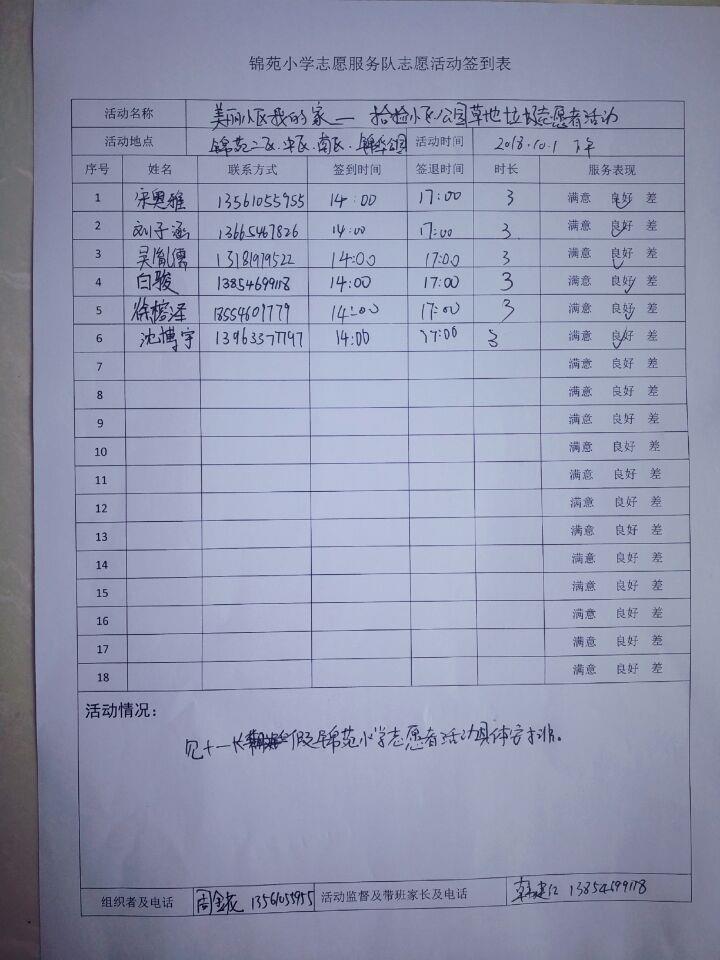 锦苑小学志愿服务队志愿活动签到表
活动名称 美丽小区我的家——捡拾小区公园草地垃圾志愿者活动
活动地点 锦苑二区.中区.南区.锦华公园 活动时间 2018.10.1 下午
序号 姓名 联系方式 签到时间 签退时间 时长 服务表现
1 宋奥雅 13561055955 14:00 17:00 3 满意 良好 差
2 刘子涵 13665467826 14:00 17:00 3 满意 良好 差
3 吴胤儒 13181979522 14:00 17:00 3 满意 良好 差
4 白骏 13854699118 14:00 17:00 3 满意 良好 差
5 徐榕泽 18554607779 14:00 17:00 3 满意 良好 差
6 沈博宇 13963377797 14:00 17:00 3 满意 良好 差
7 满意 良好 差
8 满意 良好 差
9 满意 良好 差
10 满意 良好 差
11 满意 良好 差
12 满意 良好 差
13 满意 良好 差
14 满意 良好 差
15 满意 良好 差
16 满意 良好 差
17 满意 良好 差
18 满意 良好 差
活动情况：
见十一长假锦苑小学志愿者活动具体安排。
组织者及电话 周金花 13561055955 活动监督及带班家长及电话 韩建红 13854699118